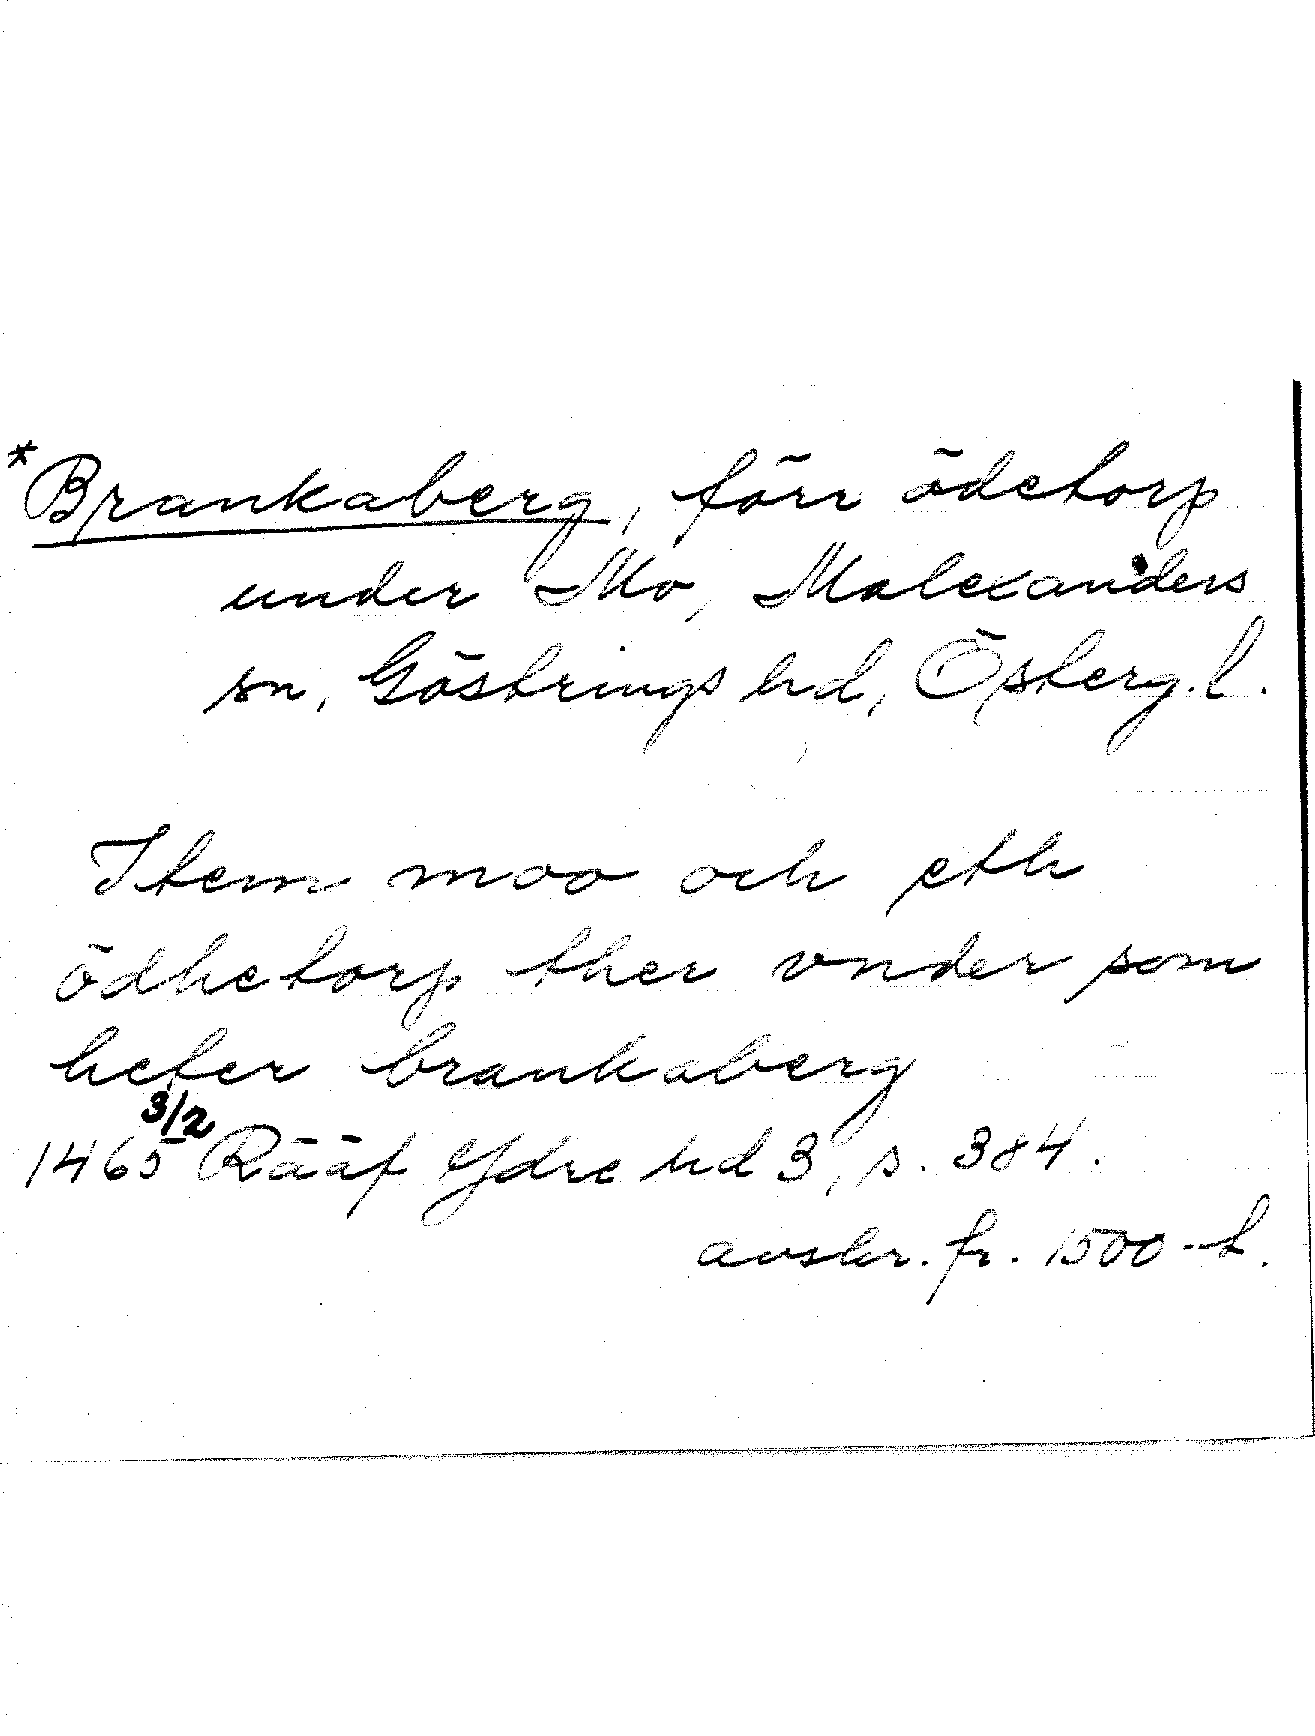 *Brankaberg, förr ödetorp
under Mo, Malexanders
sn, Göstrings hd, Österg. l.
Item moo och eth
ödhetorp ther vnder som
heter brankaberg
1465 3/2 Rääf Ydre hd 3, s. 384.
avskr. fr. 1500-t.